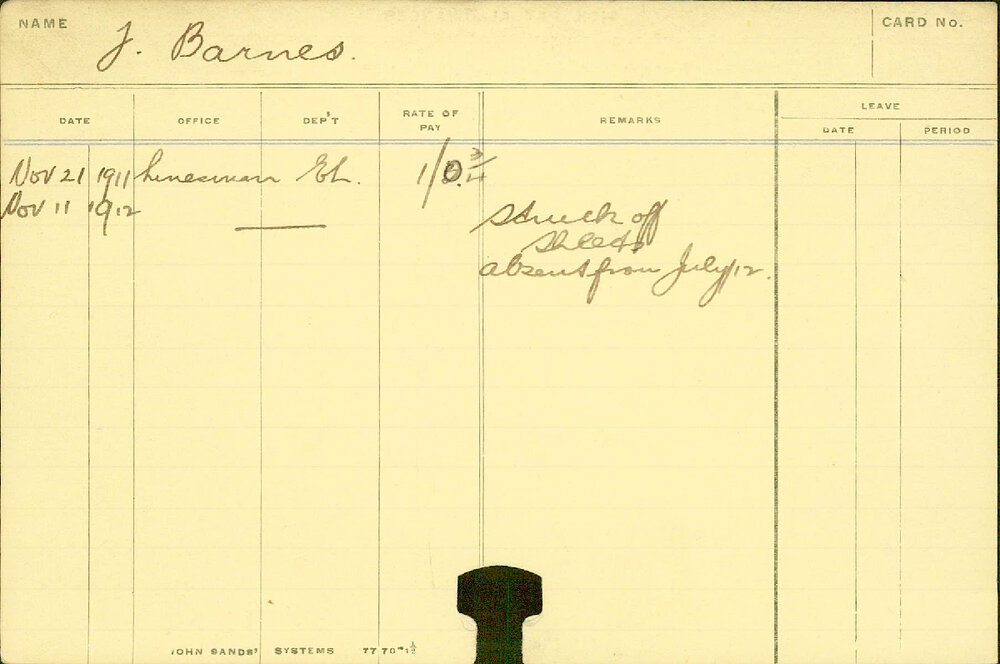 NAME
J. Barnes.
CARD No.
DATE OFFICE DEP'T RATE OF PAY REMARKS
LEAVE
DATE PERIOD
Nov 21 1911 Linesman EL. 1/0 3/4
Nov 11 1912
Struck off
Sheets
absent from July/12.
JOHN SANDS' SYSTEMS 77 70